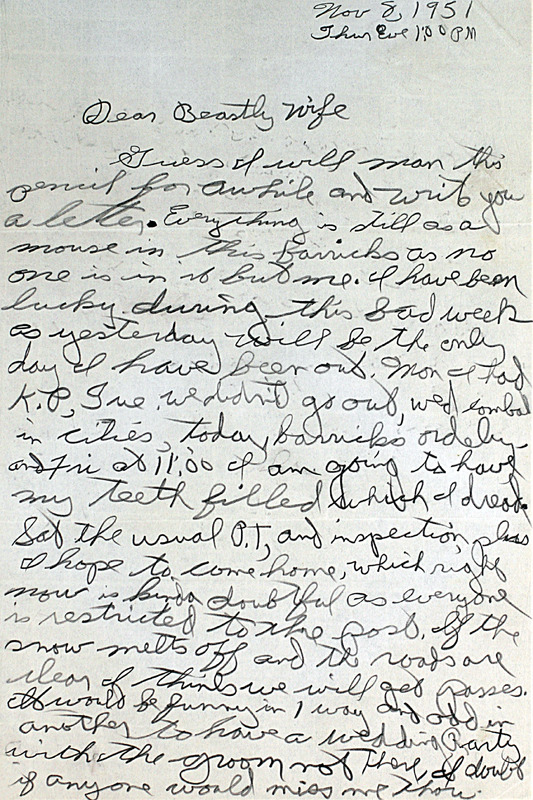 Nov 8, 1951
Thur Eve 1:00 PM
Dear Beastly Wife
Guess I will man this
pencil for awhile and write you
a letter. Everything is still as a
mouse in this barricks as no
one is in it but me. I have been
lucky during this bad week
as yesterday will be the only
day I have been out. Mon I had
K.P, Tue. we didn't go out, wed combat
in cities, today barricks orderly
and Fri at 11:00 I am going to have
my teeth filled which I dread.
Sat the usual P.T, and inspection plus
I hope to come home, which right
now is kinda doubtful as everyone
is restricted to the post. If the
snow melts off and the roads are
clear I think we will get passes.
It would be funny in 1 way and odd in
another to have a wedding Party
with the groom not there, I doubt
if anyone would miss me thou.